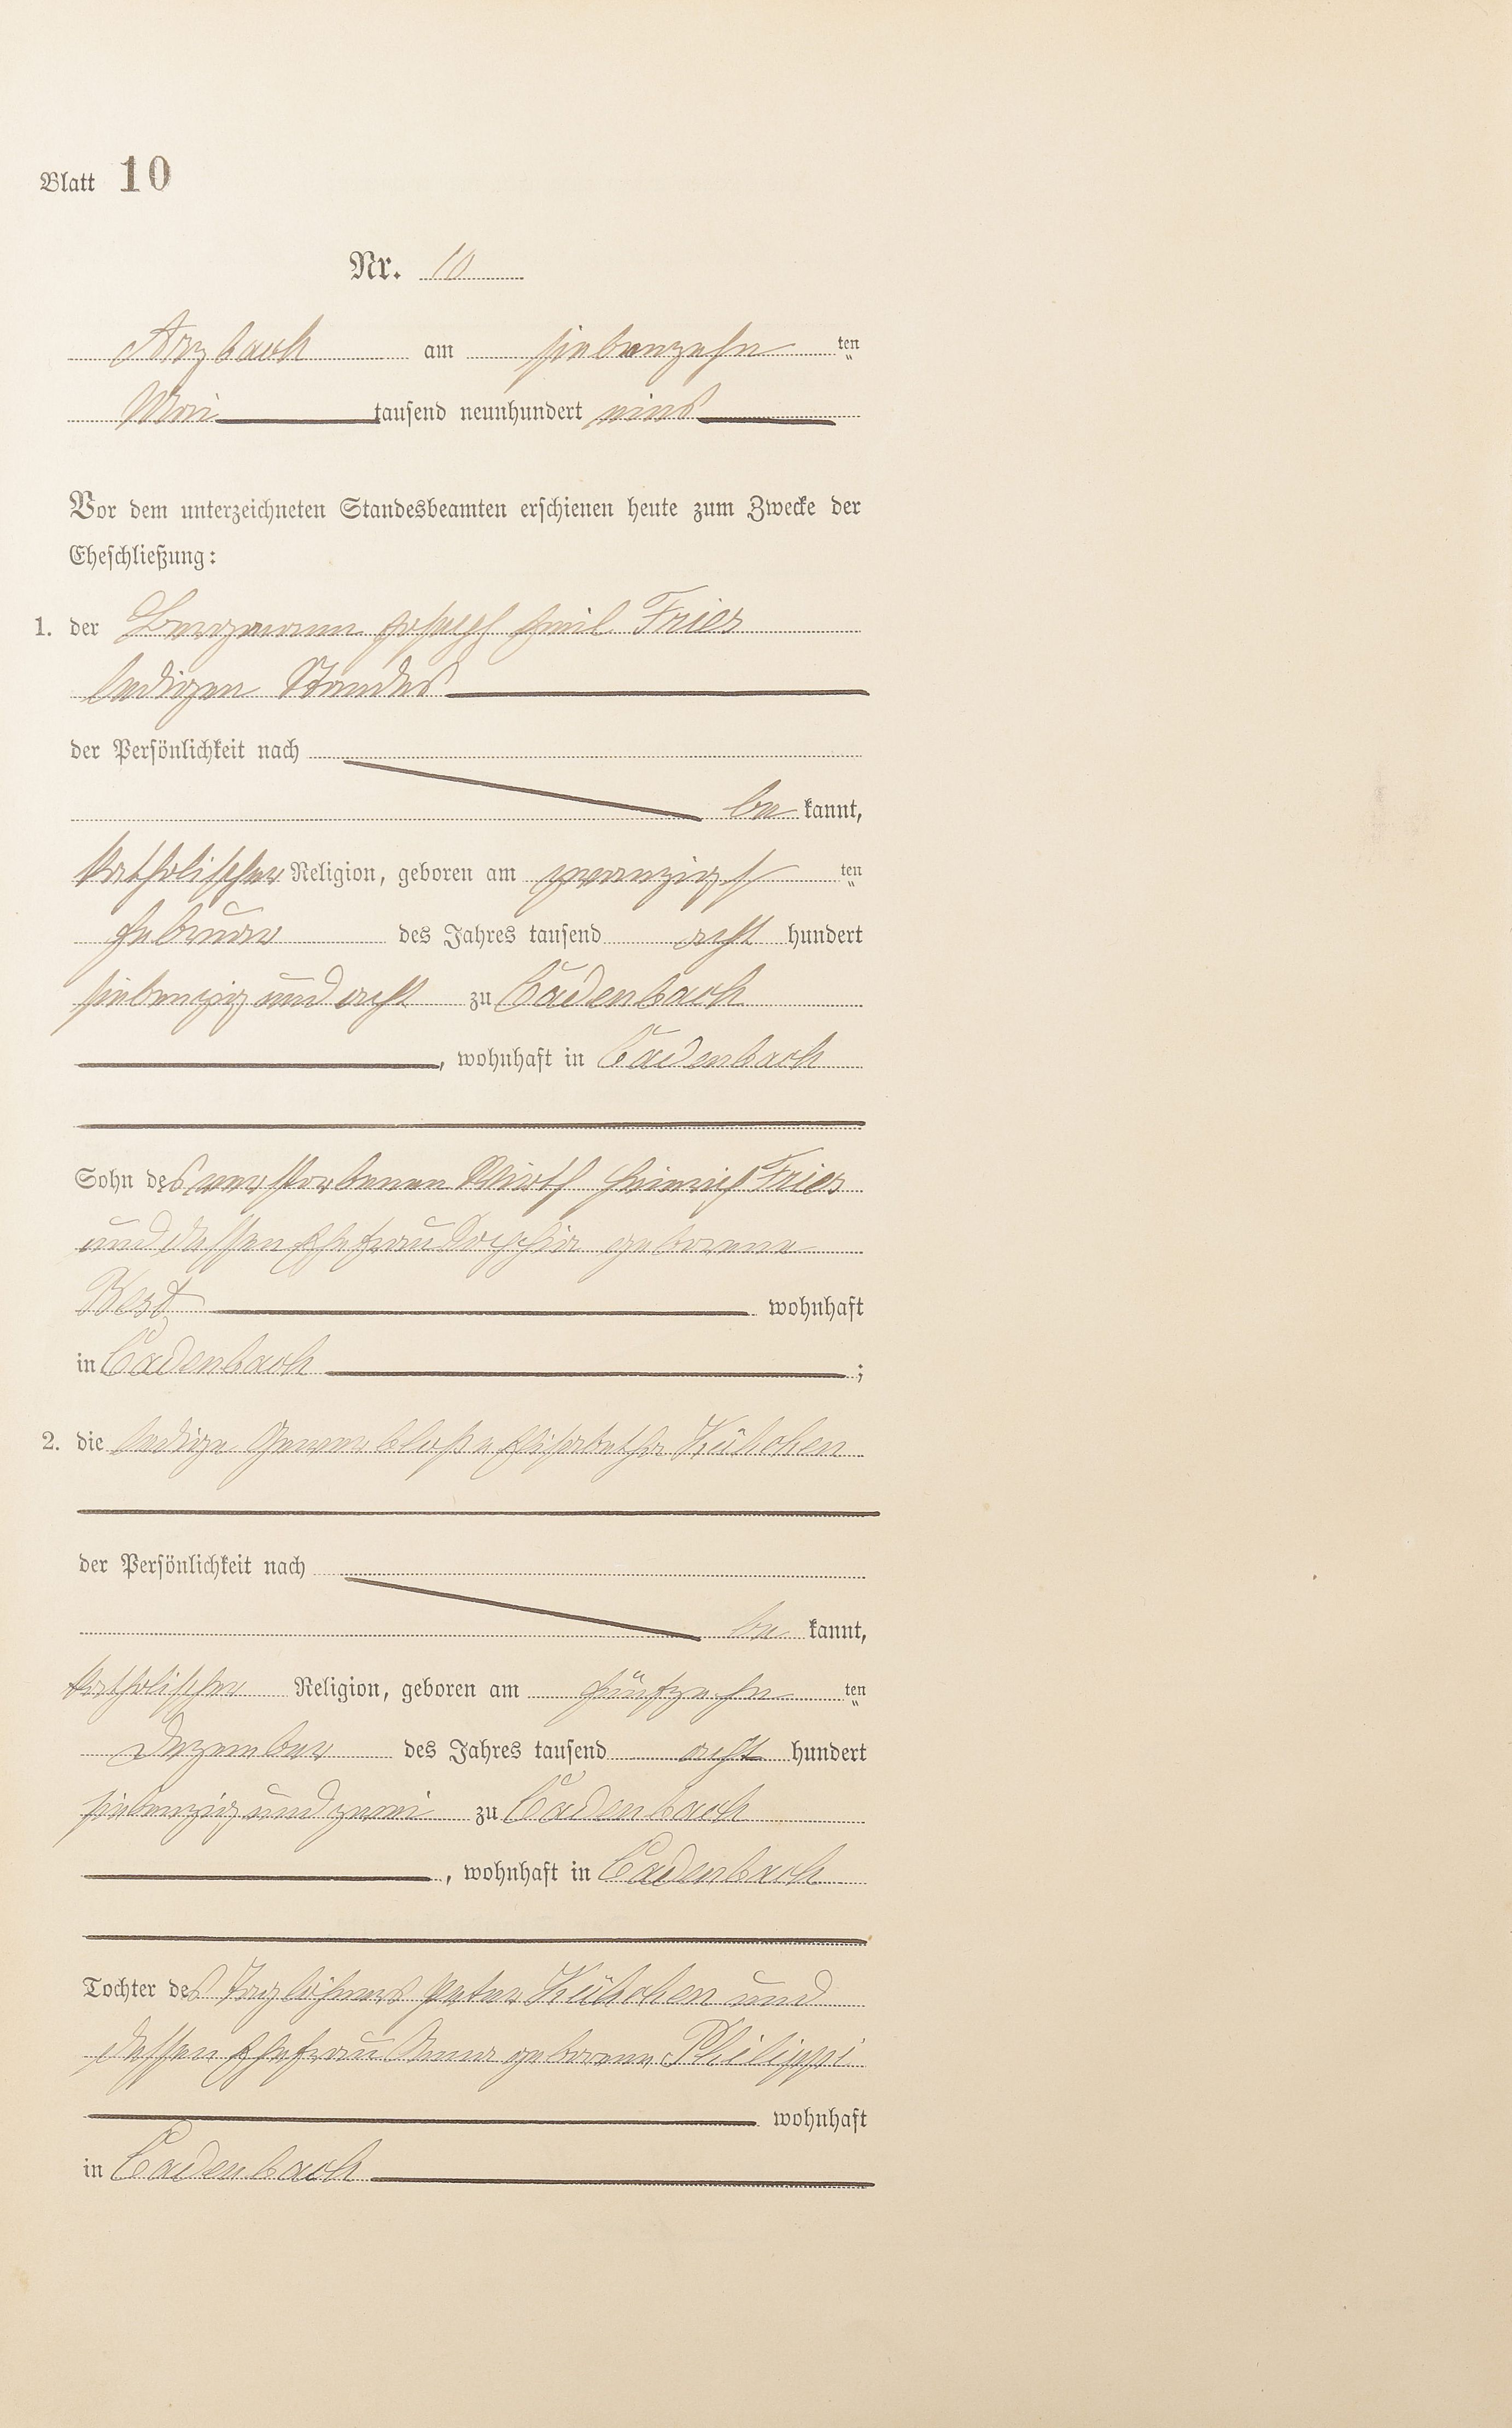 Blatt 10
Nr. 10
Arzbach am siebenzehn ten
Mai tausend neunhundert eins
Vor dem unterzeichneten Standesbeamten erschienen heute zum Zwecke der
Eheschließung:
1. der Bergmann Joseph Emil Fries
ledigen Standes
der Persönlichkeit nach
be kannt,
katholischer Religion, geboren am zwanzigst ten
Februar des Jahres tausend acht hundert
siebenzig und acht zu Cadenbach
, wohnhaft in Cadenbach
Sohn des verstorbenen Wirth Heinrich Fries
und dessen Ehefrau Sophia geborene
wohnhaft
in Cadenbach ;
2. die ledige gewerblose Elisabetha Külchen
der Persönlichkeit nach
be kannt,
katholischer Religion, geboren am fünfzehn ten
Dezember des Jahres tausend acht hundert
siebenzig und zwei zu Cadenbach
, wohnhaft in Cadenbach
Tochter des Taglöhners Peter Külchen und
dessen Ehefrau Anna geborene Philippi
wohnhaft
in Cadenbach